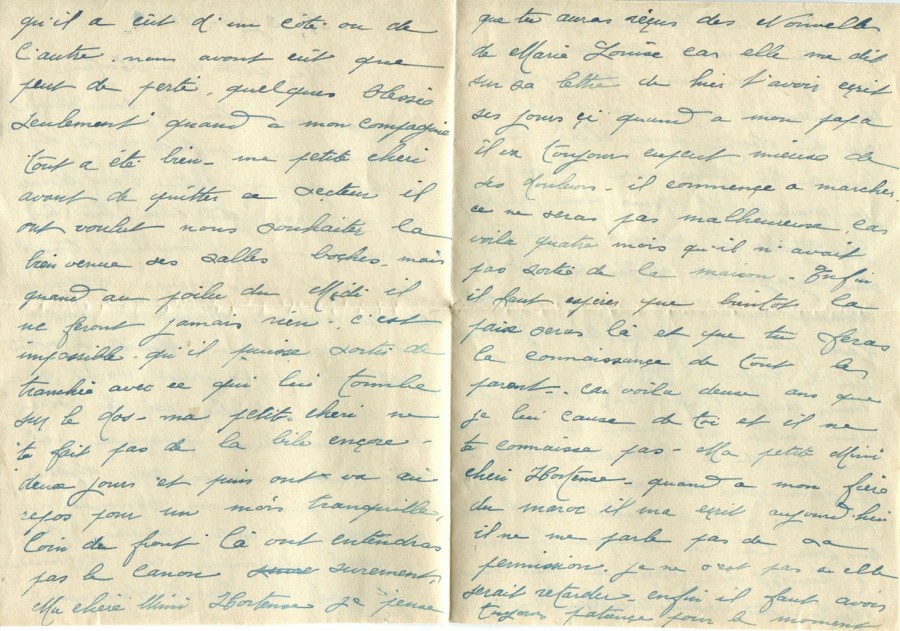 qu'il a eût d'un côté ou de
l'autre. nous avont eût que
peut de perte, quelques blessés
seulement quand a mon compagnie
tout a été bien - ma petite cheri
avant de quitter ce secteur il
ont voulut nous souhaiter la
bienvenue ses salles boches, mais
quand au poilu du Midi il
ne feront jamais rien - c'est
impossible qu'il puisse sortir de
tranchée avec ce qui lui tombe
sur le dos - ma petite cheri ne
te fait pas de la bile ençore -
deux jours et puis ont va au
repos pour un mois tranquille,
loin du front là ont entendras
pas le canon surement,
Ma chère Mimi Hortense je pense
que tu auras reçus des Nouvelles
de Marie Louise car elle me dit
sur sa lettre de hier t'avoir ecrit
ses jours çi quand a mon papa
il va toujours mieuse de
ses douleurs - il commençe a marcher,
ce ne seras pas malheureuse, car
voila quatre mois qu'il n'avait
pas sortie de la maison - Enfin
il faut esperer que bientot la
paix seras là et que tu feras
la connaissançe de tout les
parent - car voila deuse ans que
je lui cause de toi et il ne
te connaisse pas - Ma petite Mimi
cheri Hortense - quand a mon frère
du maroc il m'a ecrit aujourd'hui
il ne me parle pas de sa
permission, je ne s'est pas si elle
serait retarder - enfin il faut avoir
toujours patiençe pour le moment